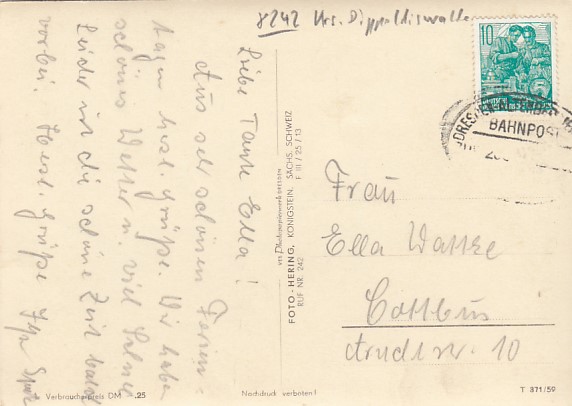 8242 Krs. Dippoldiswalde
Liebe Tante Ella!
Aus sehr schönen Ferien-
tagen herzl. Grüße. Wir haben
schönes Wetter u. viel
Leider ist die schöne Zeit bald
vorbei. Herzl. Grüße
10
BAHNPOST
Frau
Ella Watzke
Cottbus
Arndtstr. 10
VEB Photopapierwerk DRESDEN
FOTO-HERING, KÖNIGSTEIN, SÄCHS. SCHWEIZ
RUF NR. 242 F III / 25 / 13
Verbraucherpreis DM .25
Nachdruck verboten!
T 871/59